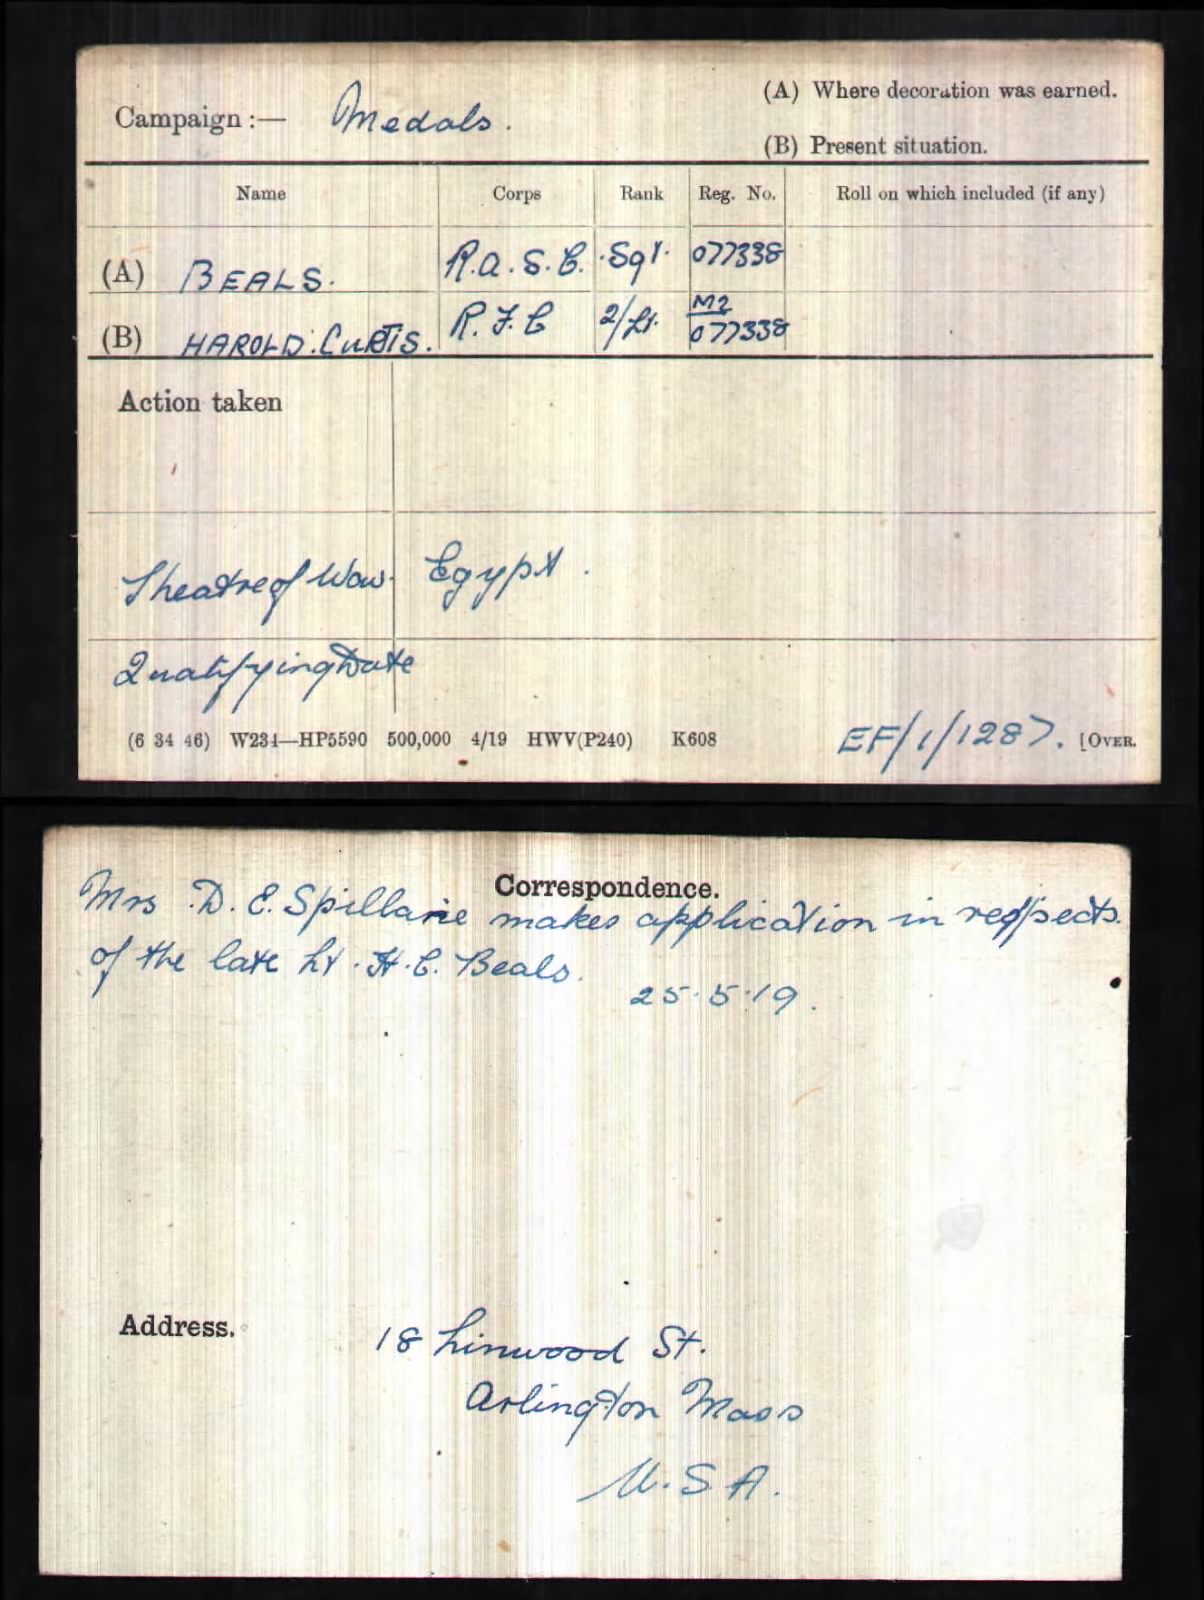 Campaign :— Medals.
(A) Where decoration was earned.
(B) Present situation.
Name Corps Rank Reg. No. Roll on which included (if any)
(A) BEALS. R.A.S.C. Sgt. 077338
(B) HAROLD. CURTIS. R.F.C 2/Lt. M2 077338
Action taken
Theatre of War Egypt.
Qualifying Date
(6 34 46) W234—HP5590 500,000 4/19 HWV(P240) K608 EF/1/1287. [OVER.
Correspondence.
Mrs D. E. Spillane makes application in respects
of the late Lt. H. C. Beals.
25.5.19.
Address. 18 Linwood St.
Arlington Mass
U.S.A.